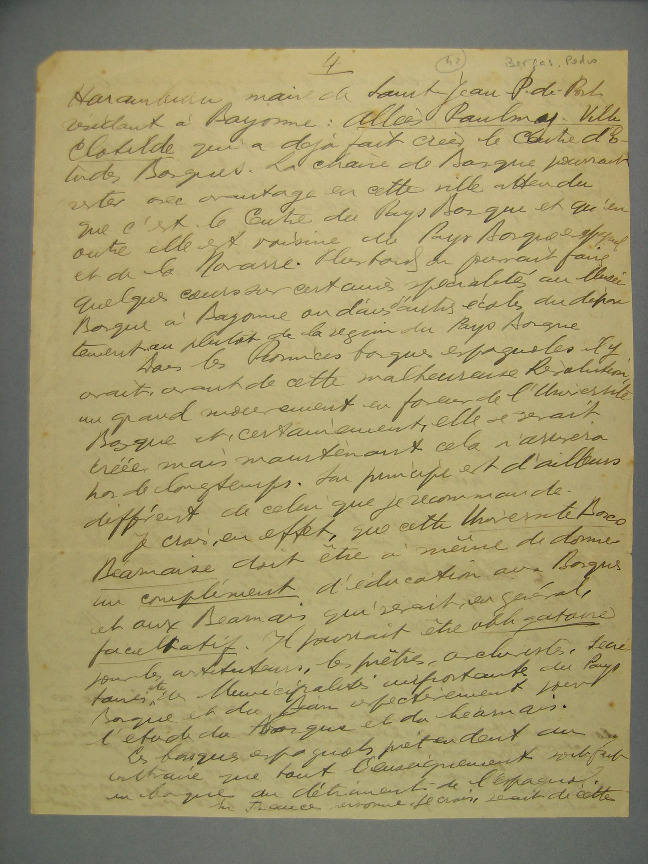 4
42
Berges, Pedro
maire de Saint-Jean-P.-de-Port
résidant à Bayonne : Allées Paulmy. Villa
Clotilde qui a déjà fait créer le Centre d'E-
tudes Basques. La chaire de Basque pourrait
rester avec avantage en cette ville attendu
que c'est le Centre du Pays Basque et qu'en
outre elle est voisine du Pays Basque espagnol
et de la Navarre. on pourrait faire
quelques cours sur certaines spécialités au Musée
Basque à Bayonne ou dans d'autres écoles du dépar-
tement ou plutôt de la région du Pays Basque
Dans les Provinces basques espagnoles il y
avait, avant de cette malheureuse Révolution
un grand mouvement en faveur de l'Université
Basque et, certainement, elle se serait
créée, mais maintenant cela n'arrivera
pas de longtemps. Son principe est d'ailleurs
différent de celui que je recommande.
Je crois, en effet, que cette Université Basco
Béarnaise doit être à même de donner
un complément d'éducation aux Basques
et aux Béarnais qui serait, en général,
facultatif. Il pourrait être obligatoire
pour les instituteurs, les prêtres, archivistes, secré
taires, etc, des Municipalités importantes du Pays
Basque et du Béarn respectivement pour
l'étude du basque et du béarnais.
Les basques espagnols prétendent au
contraire que tout l'enseignement soit fait
en basque au détriment de l'espagnol.
En France je crois, serait de cette